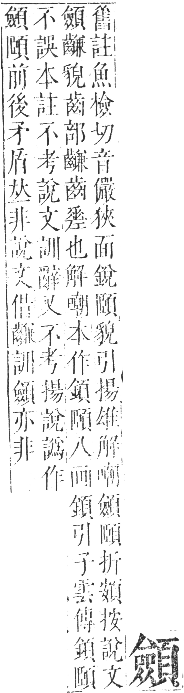 顩
舊註魚檢切音儼狹面銳頤貌引揚雄解嘲顩頤折頞按說文
顩䶢貌齒部䶢齒差也解嘲本作顉頤八画顉引子雲傳顉頤
不誤本註不考說文訓辭又不考揚說譌作
顩頤前後矛盾𠀤非說文借䶢訓顩亦非